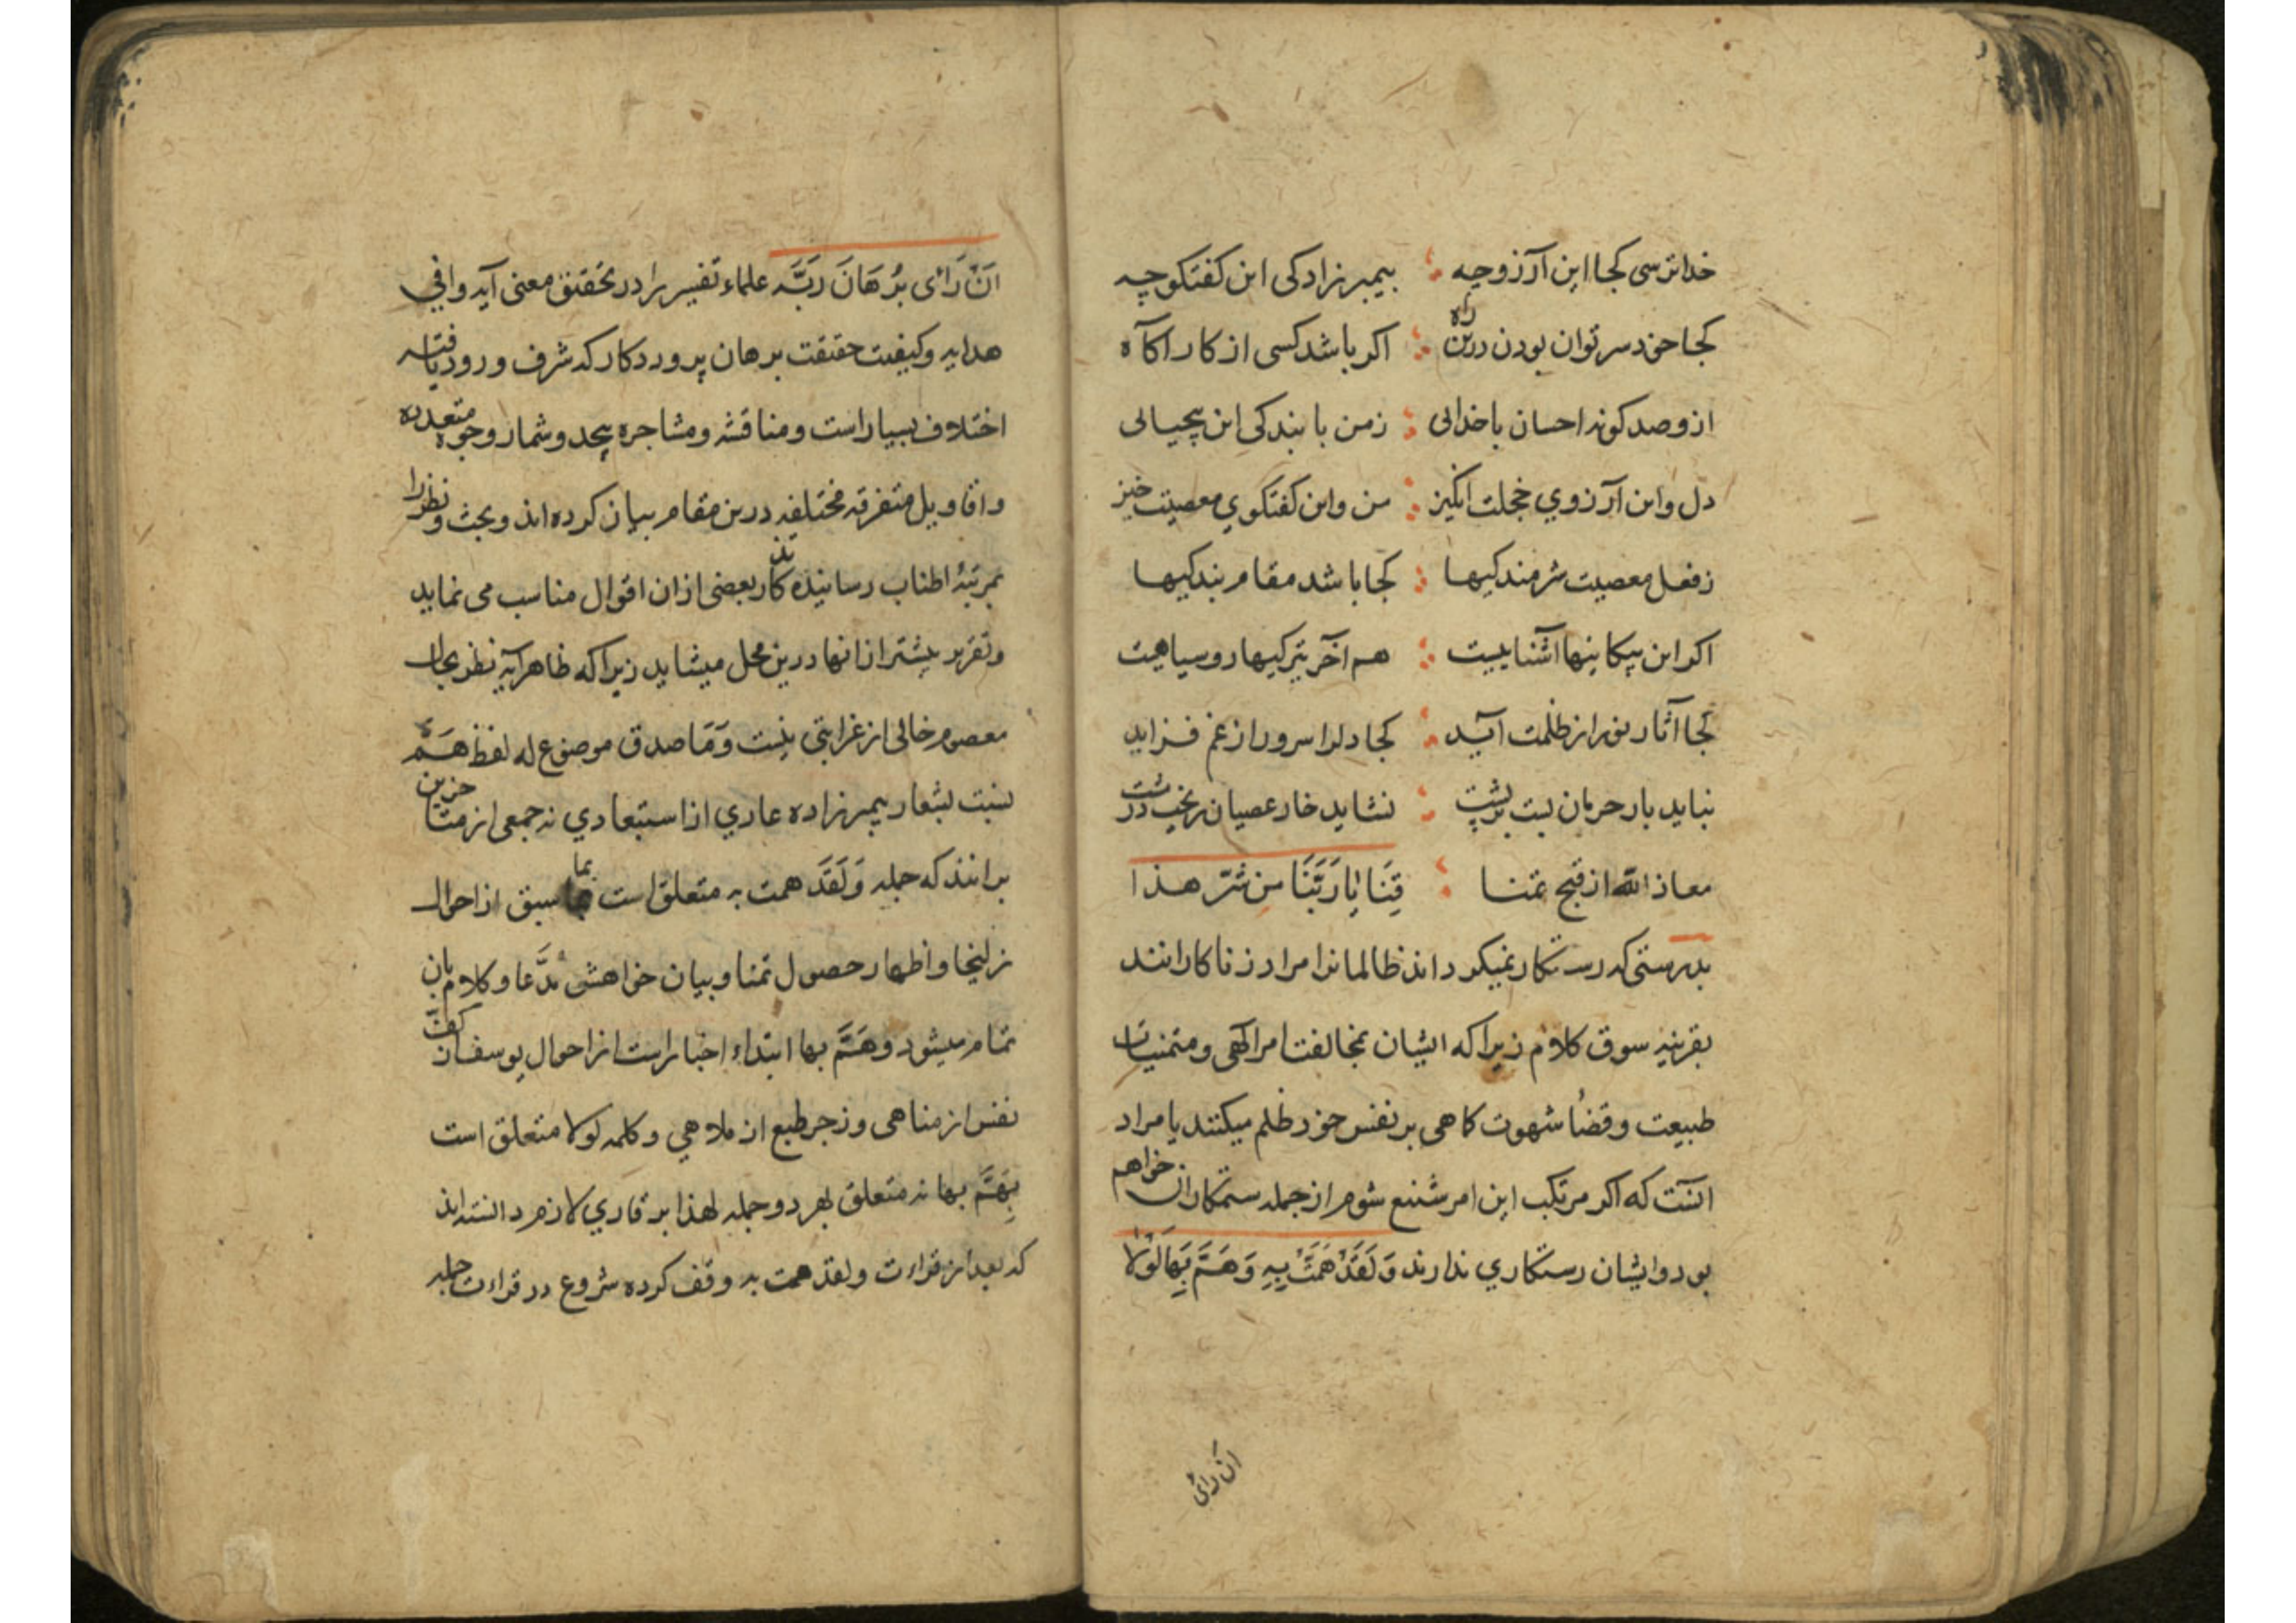 خداترسی کجا این آرزو چه ؛ بیمبرزادکی این کفتکو چه
کجا خود سر توان بودن درین راه ؛ اکر باشد کسی از کار آکاه
ازو صد کونه احسان باخدائی ؛ زمن با بندکی این بیحیائی
دل و این آرزوی خجلت انکیز ؛ من و این کفتکوی معصیت خیز
ز فعل معصیت شرمندکیها ؛ کجا باشد مقام بندکیها
اکر این بیکانیها آشناییست ؛ هم آخر تیرکیها روسیاهیت
کجا آثار نور از ظلمت آید ؛ کجا دلرا سرور از غم فزاید
نباید بار حرمان بست بر پشت ؛ نشاید خار عصیان ریخت در مشت
معاذ الله از قبح تمنا ؛ قِنَا یَا رَبَّنَا من شرّ هذا
بدرستی که رستکار نمیکرداند ظالمانرا مراد زناکارانند
بقرینه سوق کلام زیرا که ایشان بمخالفت امر الهی و متمنیات
طبیعت و قضا شهوت کاهی بر نفس خود ظلم میکنند یا مراد
انست که اکر مرتکب این امر شنیع شوم از جمله ستمکاران خواهم
بود و ایشان رستکاری ندارند وَلَقَدْ هَمَّتْ بِهِ وَهَمَّ بِهَا لَوْلَا
ان رائ
اَنْ رَائ بُرْهَانَ رَبِّه علماء تفسیر را در تحقیق معنی آیه وافی
هدایه و کیفیت حقیقت برهان پروردکار که شرف ورود یافته
اختلاف بسیار است و مناقشه و مشاجره بیحد و شمار وجوه متعدده
و اقاویل متفرقه مختلفه درین مقام بیان کرده اند و بحث و نظر را
بمرتبهٔ اطناب رسانیده تذکار بعضی ازان اقوال مناسب می نماید
و تقریر بیشتر از انها درین محل میشاید زیرا که ظاهر آیه نظر بحال
معصوم خالی از غرابتی نیست وَمَا صدق موضوع له لفظ هَمَّ
نسبت بشعار پیمبرزاده عاری از استبعادی نه جمعی از متاخرین
برانند که جمله وَلَقَدَ همت به متعلق است بما سبق از احوال
زلیخا و اظهار حصول تمنا و بیان خواهش مدَّعا و کلام بان
تمام میشود و هَمَّ بها ابتداء اخبارست از احوال یوسف از کفّ
نفس از مناهی و زجر طبع از ملاهی و کلمه لولا متعلق است
بِهَمَّ بها نه متعلق بهر دو جمله لهذا بر قاری لازم دانسته اند
که بعد از قراءت ولقد همت به وقف کرده شروع در قراءت جمله